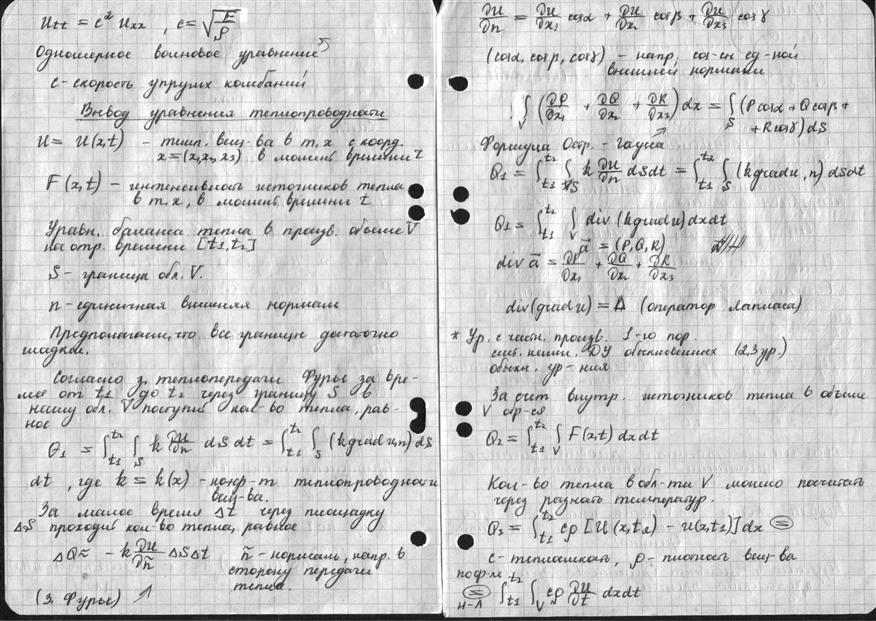 Utt = c² Uxx , c = √(E/ρ)
Одномерное волновое уравнение
c - скорость упругих колебаний
Вывод уравнения теплопроводности
U = U(x,t) - темп. вещ-ва в т. x с коорд.
x = (x₁, x₂, x₃) в момент времени t
F(x,t) - интенсивность источников тепла
в т. x, в момент времени t
Уравн. баланса тепла в произв. объеме V
на отр. времени [t₁, t₂]
S - граница обл. V.
n - единичная внешняя нормаль
Предполагаем, что все границы достаточно
гладкие.
Согласно з. теплопередачи Фурье за вре-
мя от t₁ до t₂ через границу S в
нашу обл. V поступит кол-во тепла, рав-
ное
Q₁ = ∫ₜ₁ᵗ² ∫_S k ∂u/∂n dS dt = ∫ₜ₁ᵗ² ∫_S (k grad u, n) dS
dt, где k = k(x) - коэф-т теплопроводности
вещ-ва.
За малое время Δt через площадку
ΔS проходит кол-во тепла, равное
ΔQ ≈ - k ∂U/∂ñ ΔSΔt ñ - нормаль, напр. в
сторону передачи
тепла.
(з. Фурье)
∂u/∂n = ∂u/∂x₁ cosα + ∂u/∂x₂ cosβ + ∂u/∂x₃ cosγ
(cosα, cosβ, cosγ) - напр. cos-сы ед-ной
внешней нормали
∫_V (∂P/∂x₁ + ∂Q/∂x₂ + ∂R/∂x₃) dx = ∫_S (P cosα + Q cosβ +
+ R cosγ) dS
Формула Остр. - Гаусса
Q₁ = ∫ₜ₁ᵗ² ∫_S k ∂u/∂n dS dt = ∫ₜ₁ᵗ² ∫_S (k grad u, n) dS dt
Q₁ = ∫ₜ₁ᵗ² ∫_V div (k grad u) dx dt
a⃗ = (P, Q, R)
div a⃗ = ∂P/∂x₁ + ∂Q/∂x₂ + ∂R/∂x₃
div(grad u) = Δ (оператор Лапласа)
* Ур. с частн. произв. 1-го пор.
ДУ обыкновенных (2,3 ур.)
обыкн. ур-ния
За счет внутр. источников тепла в объеме
V обр-ся
Q₂ = ∫ₜ₁ᵗ² ∫_V F(x,t) dx dt
Кол-во тепла в обл-ти V можно посчитать
через разность температур.
Q₃ = ∫ₜ₁ᵗ² cρ [U(x,t₂) - u(x,t₁)] dx =
c - теплоемкость, ρ - плотность вещ-ва
по ф-ле
Н-Л
= ∫ₜ₁ᵗ² ∫_V cρ ∂u/∂t dx dt